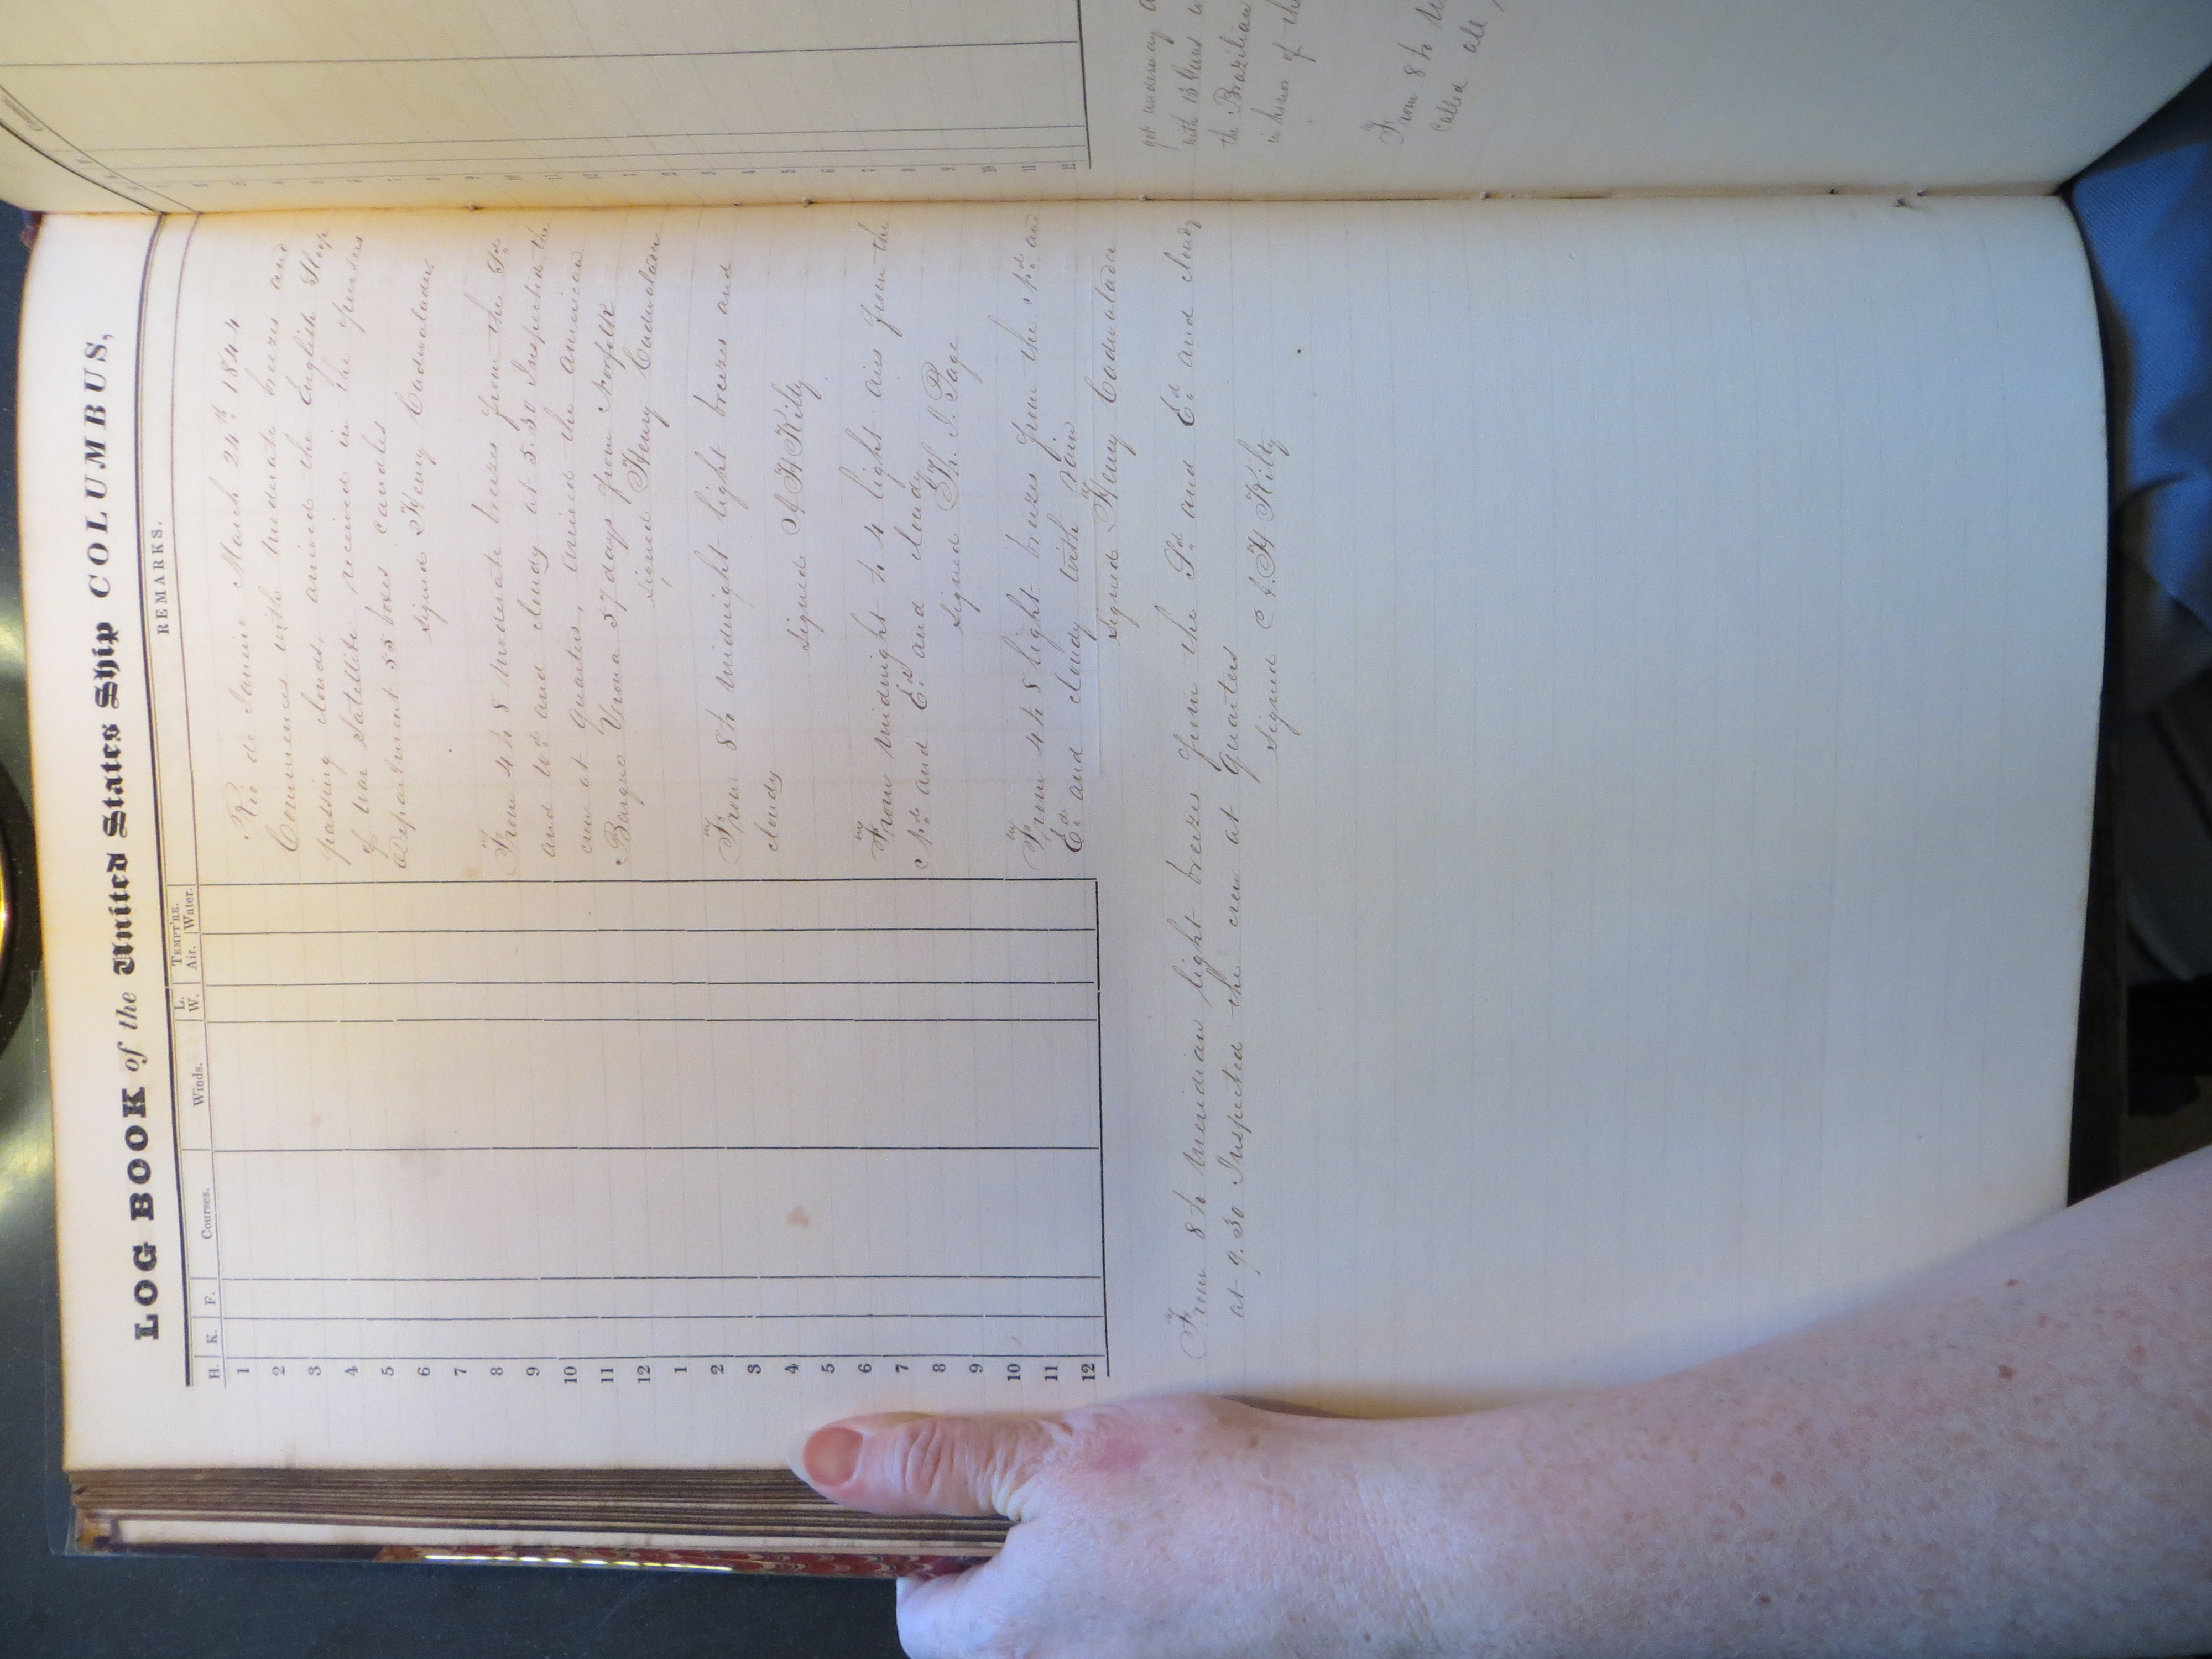 LOG BOOK of the United States Ship COLUMBUS,
H. K. F. Courses. Winds. L. W. TEMPT'RE. Air. Water. REMARKS.
1
2
3
4
5
6
7
8
9
10
11
12
1
2
3
4
5
6
7
8
9
10
11
12
Rio de Janeiro March 24th 1844
Commences with moderate breezes and
passing clouds, arrived the English Sloop
of War Satellite received in the pursers
Department 55 boxes candles
signed Henry Cadwalader
From 4 to 8 Moderate breezes from the Sd
and Wd and cloudy at 5.30 Inspected the
crew at quarters, arrived the American
Barque Verona 37 days from Norfolk
signed Henry Cadwalader
From 8 to midnight light breezes and
cloudy
signed A H Kilty
From midnight to 4 light airs from the
Nd and Ed and cloudy
signed Th. J. Page
From 4 to 8 light breezes from the Nd and
Ed and cloudy with rain
signed Henry Cadwalader
From 8 to Meridian light breezes from the Sd and Ed and cloudy
at 9.30 Inspected the crew at quarters
signed A. H Kilty
got underway
with 13 Guns
the Brazilian
in honor of the
From 8 to
called all